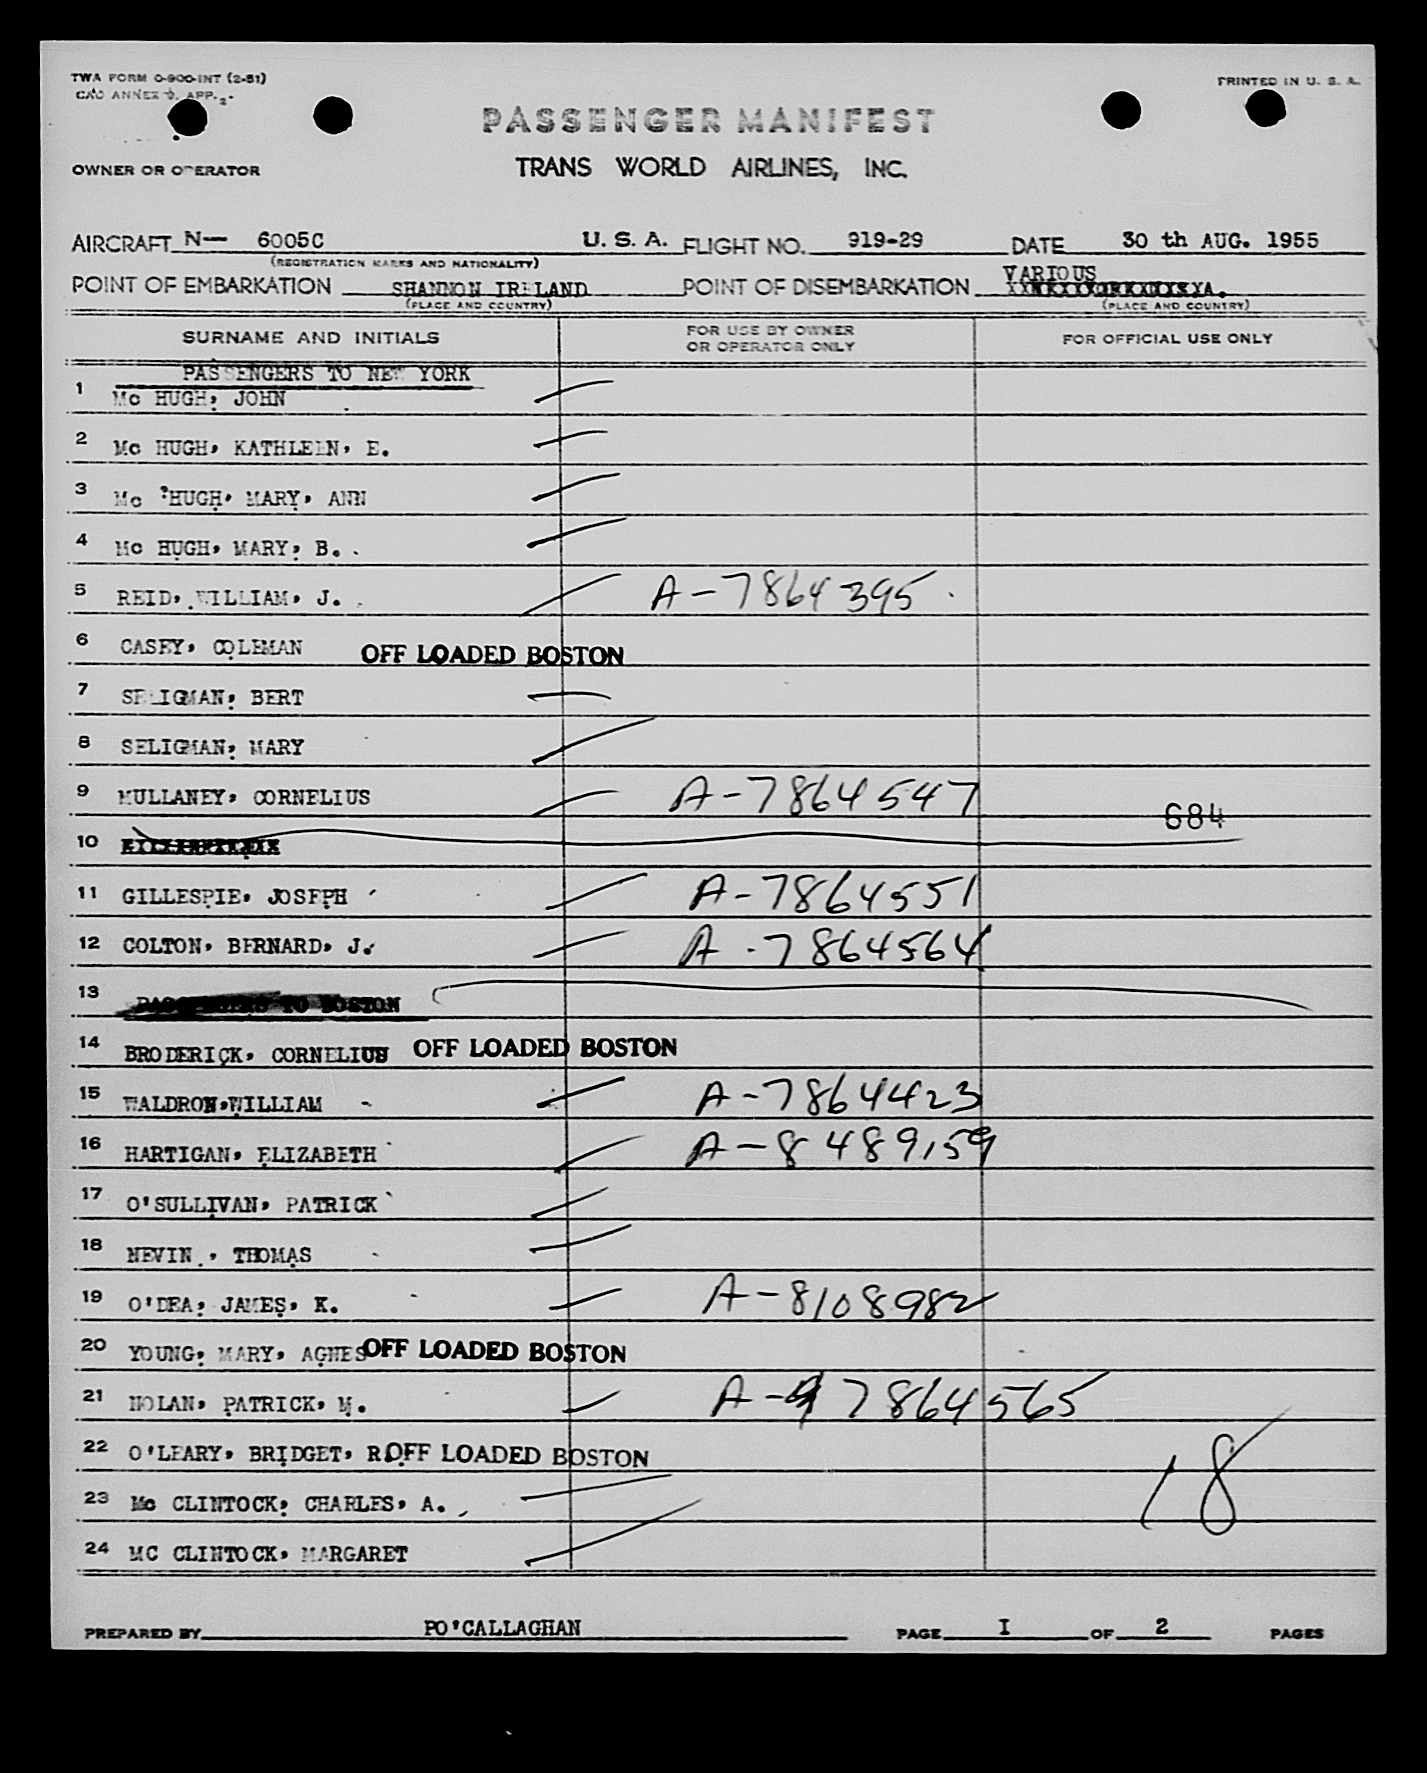 TWA FORM O-900-INT (2-51)
PRINTED IN U. S. A.
CAO ANNEX 9, APP. 2.
PASSENGER MANIFEST
OWNER OR OPERATOR TRANS WORLD AIRLINES, INC.
AIRCRAFT N— 6005C U. S. A. FLIGHT NO. 919-29 DATE 30 th AUG. 1955
(REGISTRATION MARKS AND NATIONALITY)
POINT OF EMBARKATION SHANNON IRELAND POINT OF DISEMBARKATION VARIOUS
(PLACE AND COUNTRY) (PLACE AND COUNTRY)
SURNAME AND INITIALS FOR USE BY OWNER OR OPERATOR ONLY FOR OFFICIAL USE ONLY
PASSENGERS TO NEW YORK
1 Mc HUGH, JOHN
2 Mc HUGH, KATHLEEN, E.
3 Mc HUGH, MARY, ANN
4 Mc HUGH, MARY, B.
5 REID, WILLIAM, J. A-7864395
6 CASEY, COLEMAN OFF LOADED BOSTON
7 SELIGMAN, BERT
8 SELIGMAN, MARY
9 MULLANEY, CORNELIUS A-7864547
684
10
11 GILLESPIE, JOSEPH A-7864551
12 COLTON, BERNARD, J. A-7864564
13 PASSENGERS TO BOSTON
14 BRODERICK, CORNELIUS OFF LOADED BOSTON
15 WALDRON, WILLIAM A-7864423
16 HARTIGAN, ELIZABETH A-8489159
17 O'SULLIVAN, PATRICK
18 NEVIN, THOMAS
19 O'DEA, JAMES, K. A-8108982
20 YOUNG, MARY, AGNES OFF LOADED BOSTON
21 NOLAN, PATRICK, M. A-7864565
22 O'LEARY, BRIDGET, R. OFF LOADED BOSTON
18
23 Mc CLINTOCK, CHARLES, A.
24 MC CLINTOCK, MARGARET
PREPARED BY PO'CALLAGHAN PAGE I OF 2 PAGES